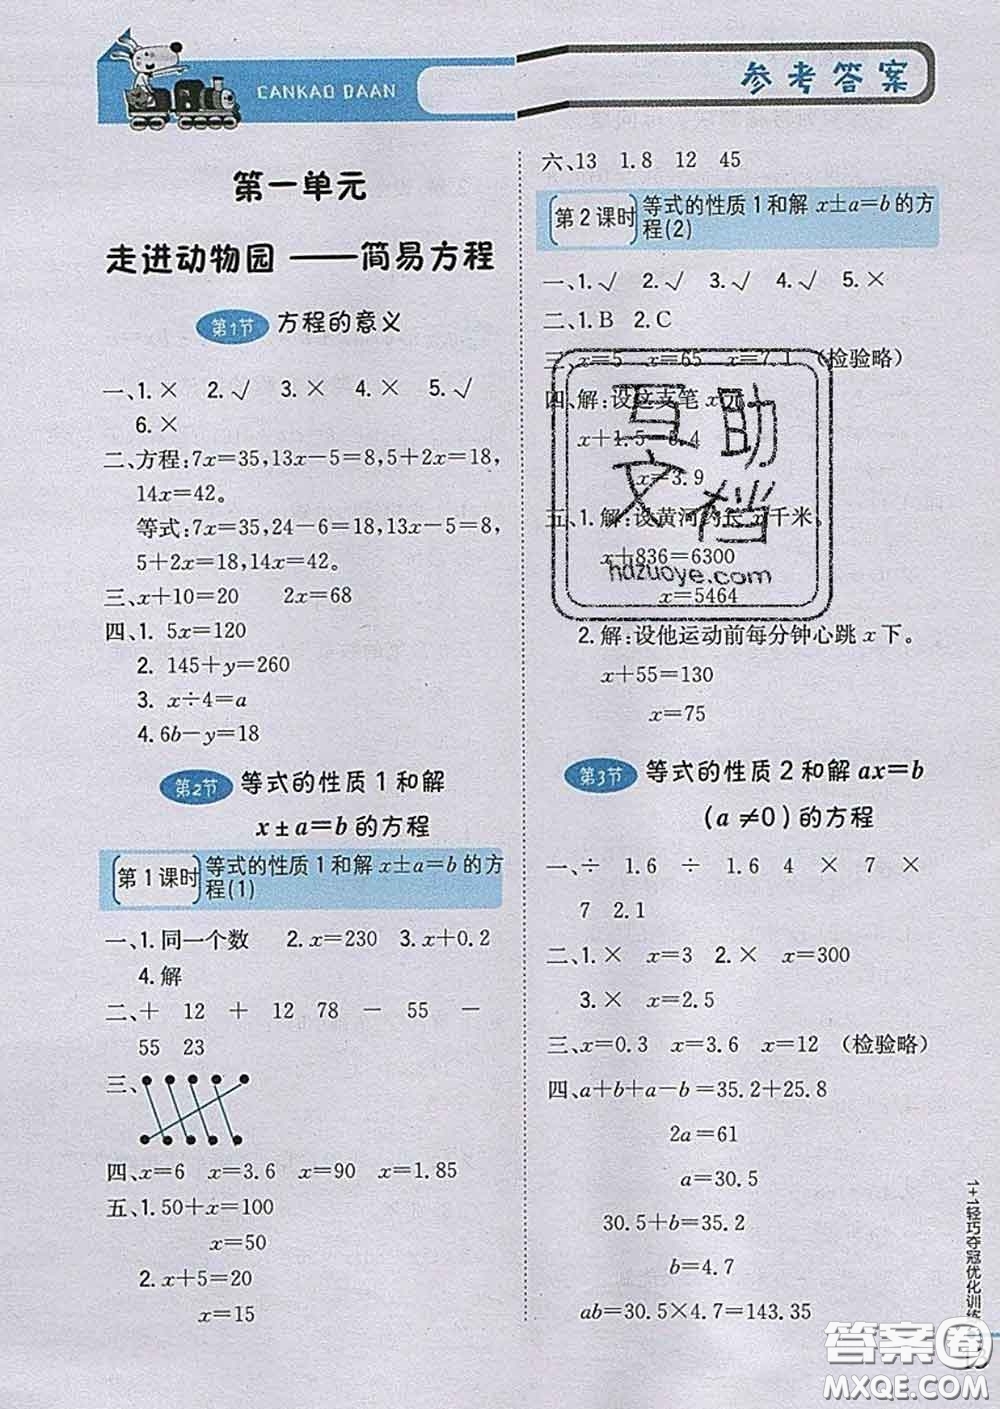 CANKAO DAAN
参考答案
第一单元
走进动物园 ——简易方程
第1节 方程的意义
一、1. × 2. √ 3. × 4. × 5. √
6. ×
二、方程:7x=35,13x-5=8,5+2x=18,
14x=42。
等式:7x=35,24-6=18,13x-5=8,
5+2x=18,14x=42。
三、x+10=20 2x=68
四、1. 5x=120
2. 145+y=260
3. x÷4=a
4. 6b-y=18
第2节 等式的性质1和解
x±a=b的方程
第1课时 等式的性质1和解x±a=b的方
程(1)
一、1. 同一个数 2. x=230 3. x+0.2
4. 解
二、+ 12 + 12 78 - 55 -
55 23
三、
四、x=6 x=3.6 x=90 x=1.85
五、1. 50+x=100
x=50
2. x+5=20
x=15
六、13 1.8 12 45
第2课时 等式的性质1和解x±a=b的方
程(2)
一、1. √ 2. √ 3. √ 4. √ 5. ×
二、1. B 2. C
三、x=5 x=65 x=7.1 (检验略)
四、解:设这支笔x元。
x+1.5=5.4
x=3.9
五、1. 解:设黄河约长x千米。
x+836=6300
x=5464
2. 解:设他运动前每分钟心跳x下。
x+55=130
x=75
第3节 等式的性质2和解ax=b
(a≠0)的方程
一、÷ 1.6 ÷ 1.6 4 × 7 ×
7 2.1
二、1. × x=3 2. × x=300
3. × x=2.5
三、x=0.3 x=3.6 x=12 (检验略)
四、a+b+a-b=35.2+25.8
2a=61
a=30.5
30.5+b=35.2
b=4.7
ab=30.5×4.7=143.35
1+1轻巧夺冠优化训练
互助
文档
hdzuoye.com
答案卷
MXQE.COM